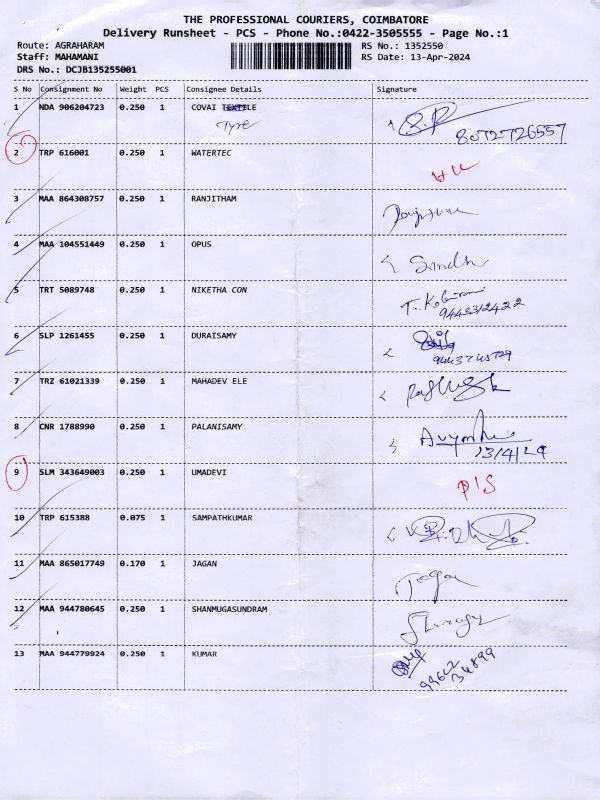 THE PROFESSIONAL COURIERS, COIMBATORE
Delivery Runsheet - PCS - Phone No.:0422-3505555 - Page No.:1
Route: AGRAHARAM RS No.: 1352550
Staff: MAHAMANI RS Date: 13-Apr-2024
DRS No.: DCJB135255001
S No Consignment No Weight PCS Consignee Details Signature
1 NDA 906204723 0.250 1 COVAI TEXTILE
Tyre 8072726557
2 TRP 616001 0.250 1 WATERTEC
3 MAA 864308757 0.250 1 RANJITHAM
4 MAA 104551449 0.250 1 OPUS
5 TRT 5089748 0.250 1 NIKETHA CON
9443312422
6 SLP 1261455 0.250 1 DURAISAMY
7 TRZ 61021339 0.250 1 MAHADEV ELE
8 CNR 1788990 0.250 1 PALANISAMY
13/4/24
9 SLM 343649003 0.250 1 UMADEVI
10 TRP 615388 0.075 1 SAMPATHKUMAR
11 MAA 865017749 0.170 1 JAGAN
12 MAA 944780645 0.250 1 SHANMUGASUNDRAM
13 MAA 944779924 0.250 1 KUMAR
99642
34899